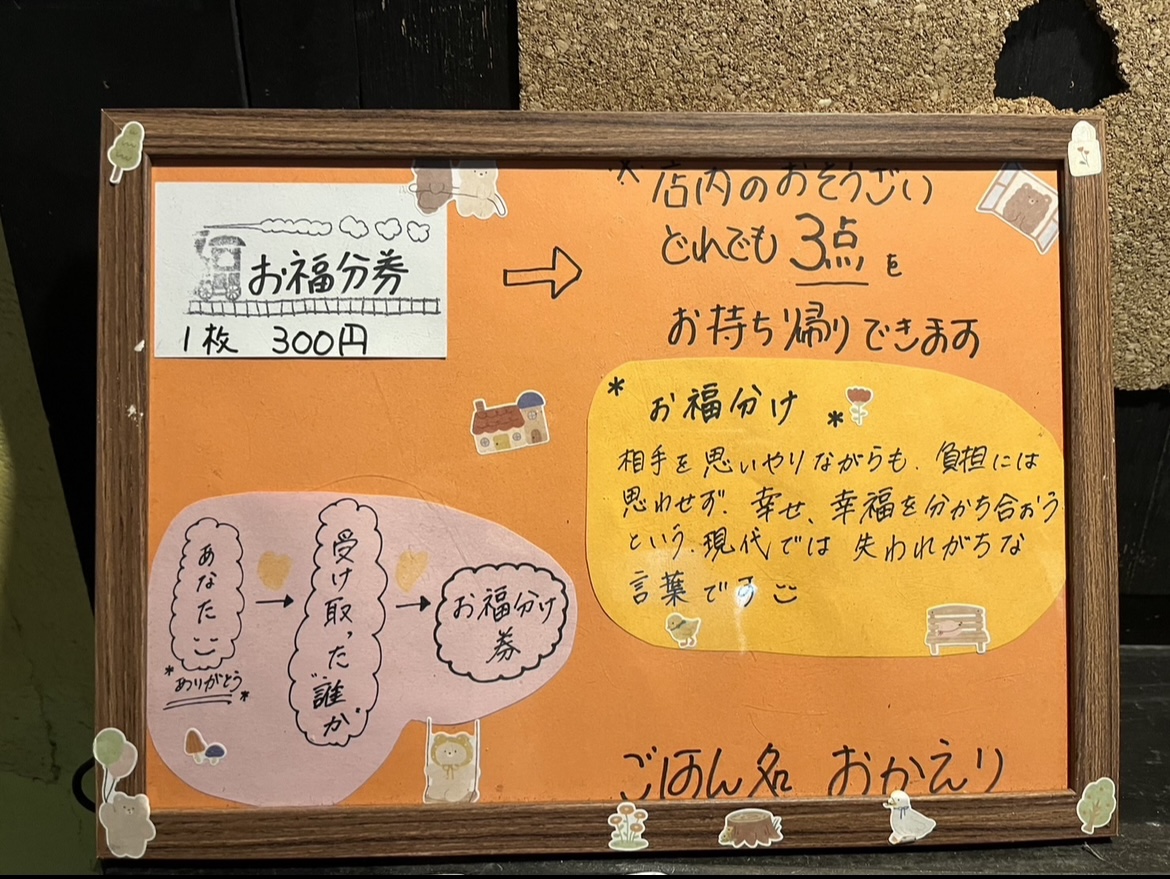 お福分券
1枚 300円
* 店内のおそうざい
どれでも 3点 を
お持ち帰りできます
* お福分け *
相手を思いやりながらも、負担には
思わせず、幸せ、幸福を分かち合おう
という、現代では 失われがちな
言葉です
あなた
*ありがとう*
受け取った"誰か"
お福分け
券
ごはん処 おかえり